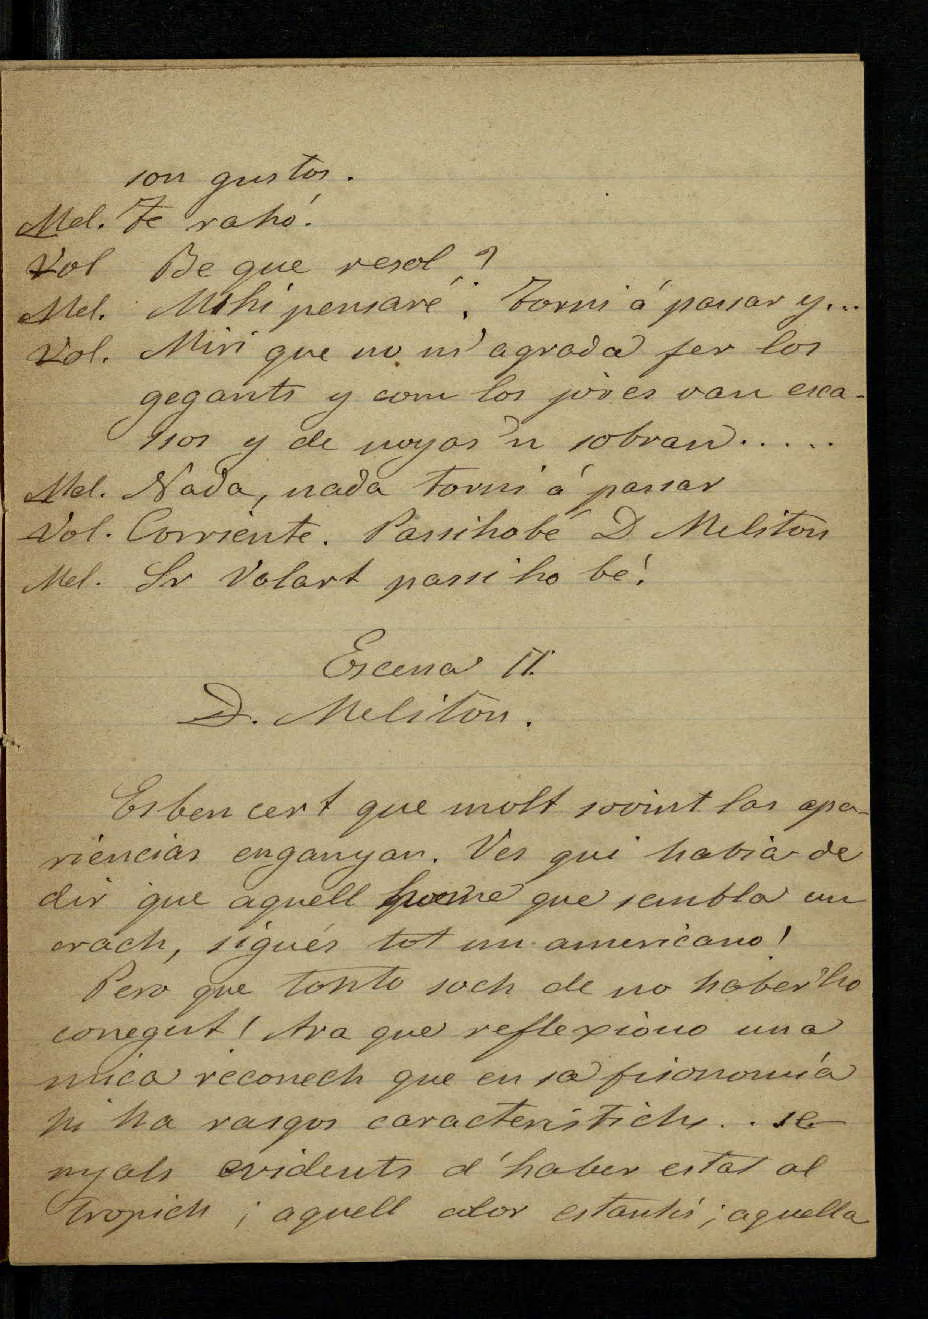 son gustos.
Mel. Te rahó.
Vol Be que resol?
Mel. M'hi pensaré; torni á passar y...
Vol. Miri que no m' agrada fer los
gegants y com los joves van esca-
sos y de noyas 'n sobran.....
Mel. Nada, nada torni á passar
Vol. Corriente. Passihobé D Meliton
Mel. Sr Volart passi ho bé!
Escena II.
D. Meliton.
Es ben cert que molt sovint las apa-
riencias enganyan. Ves qui habia de
dir que aquell home que sembla un
orach, sigués tot un americano!
Pero que tonto soch de no haber'ho
conegut! Ara que reflexiono una
mica reconech que en sa fisonomía
hi ha rasgos caracteristichs.. se
nyals evidents d'haber estat al
tropich; aquell color estantís; aquella